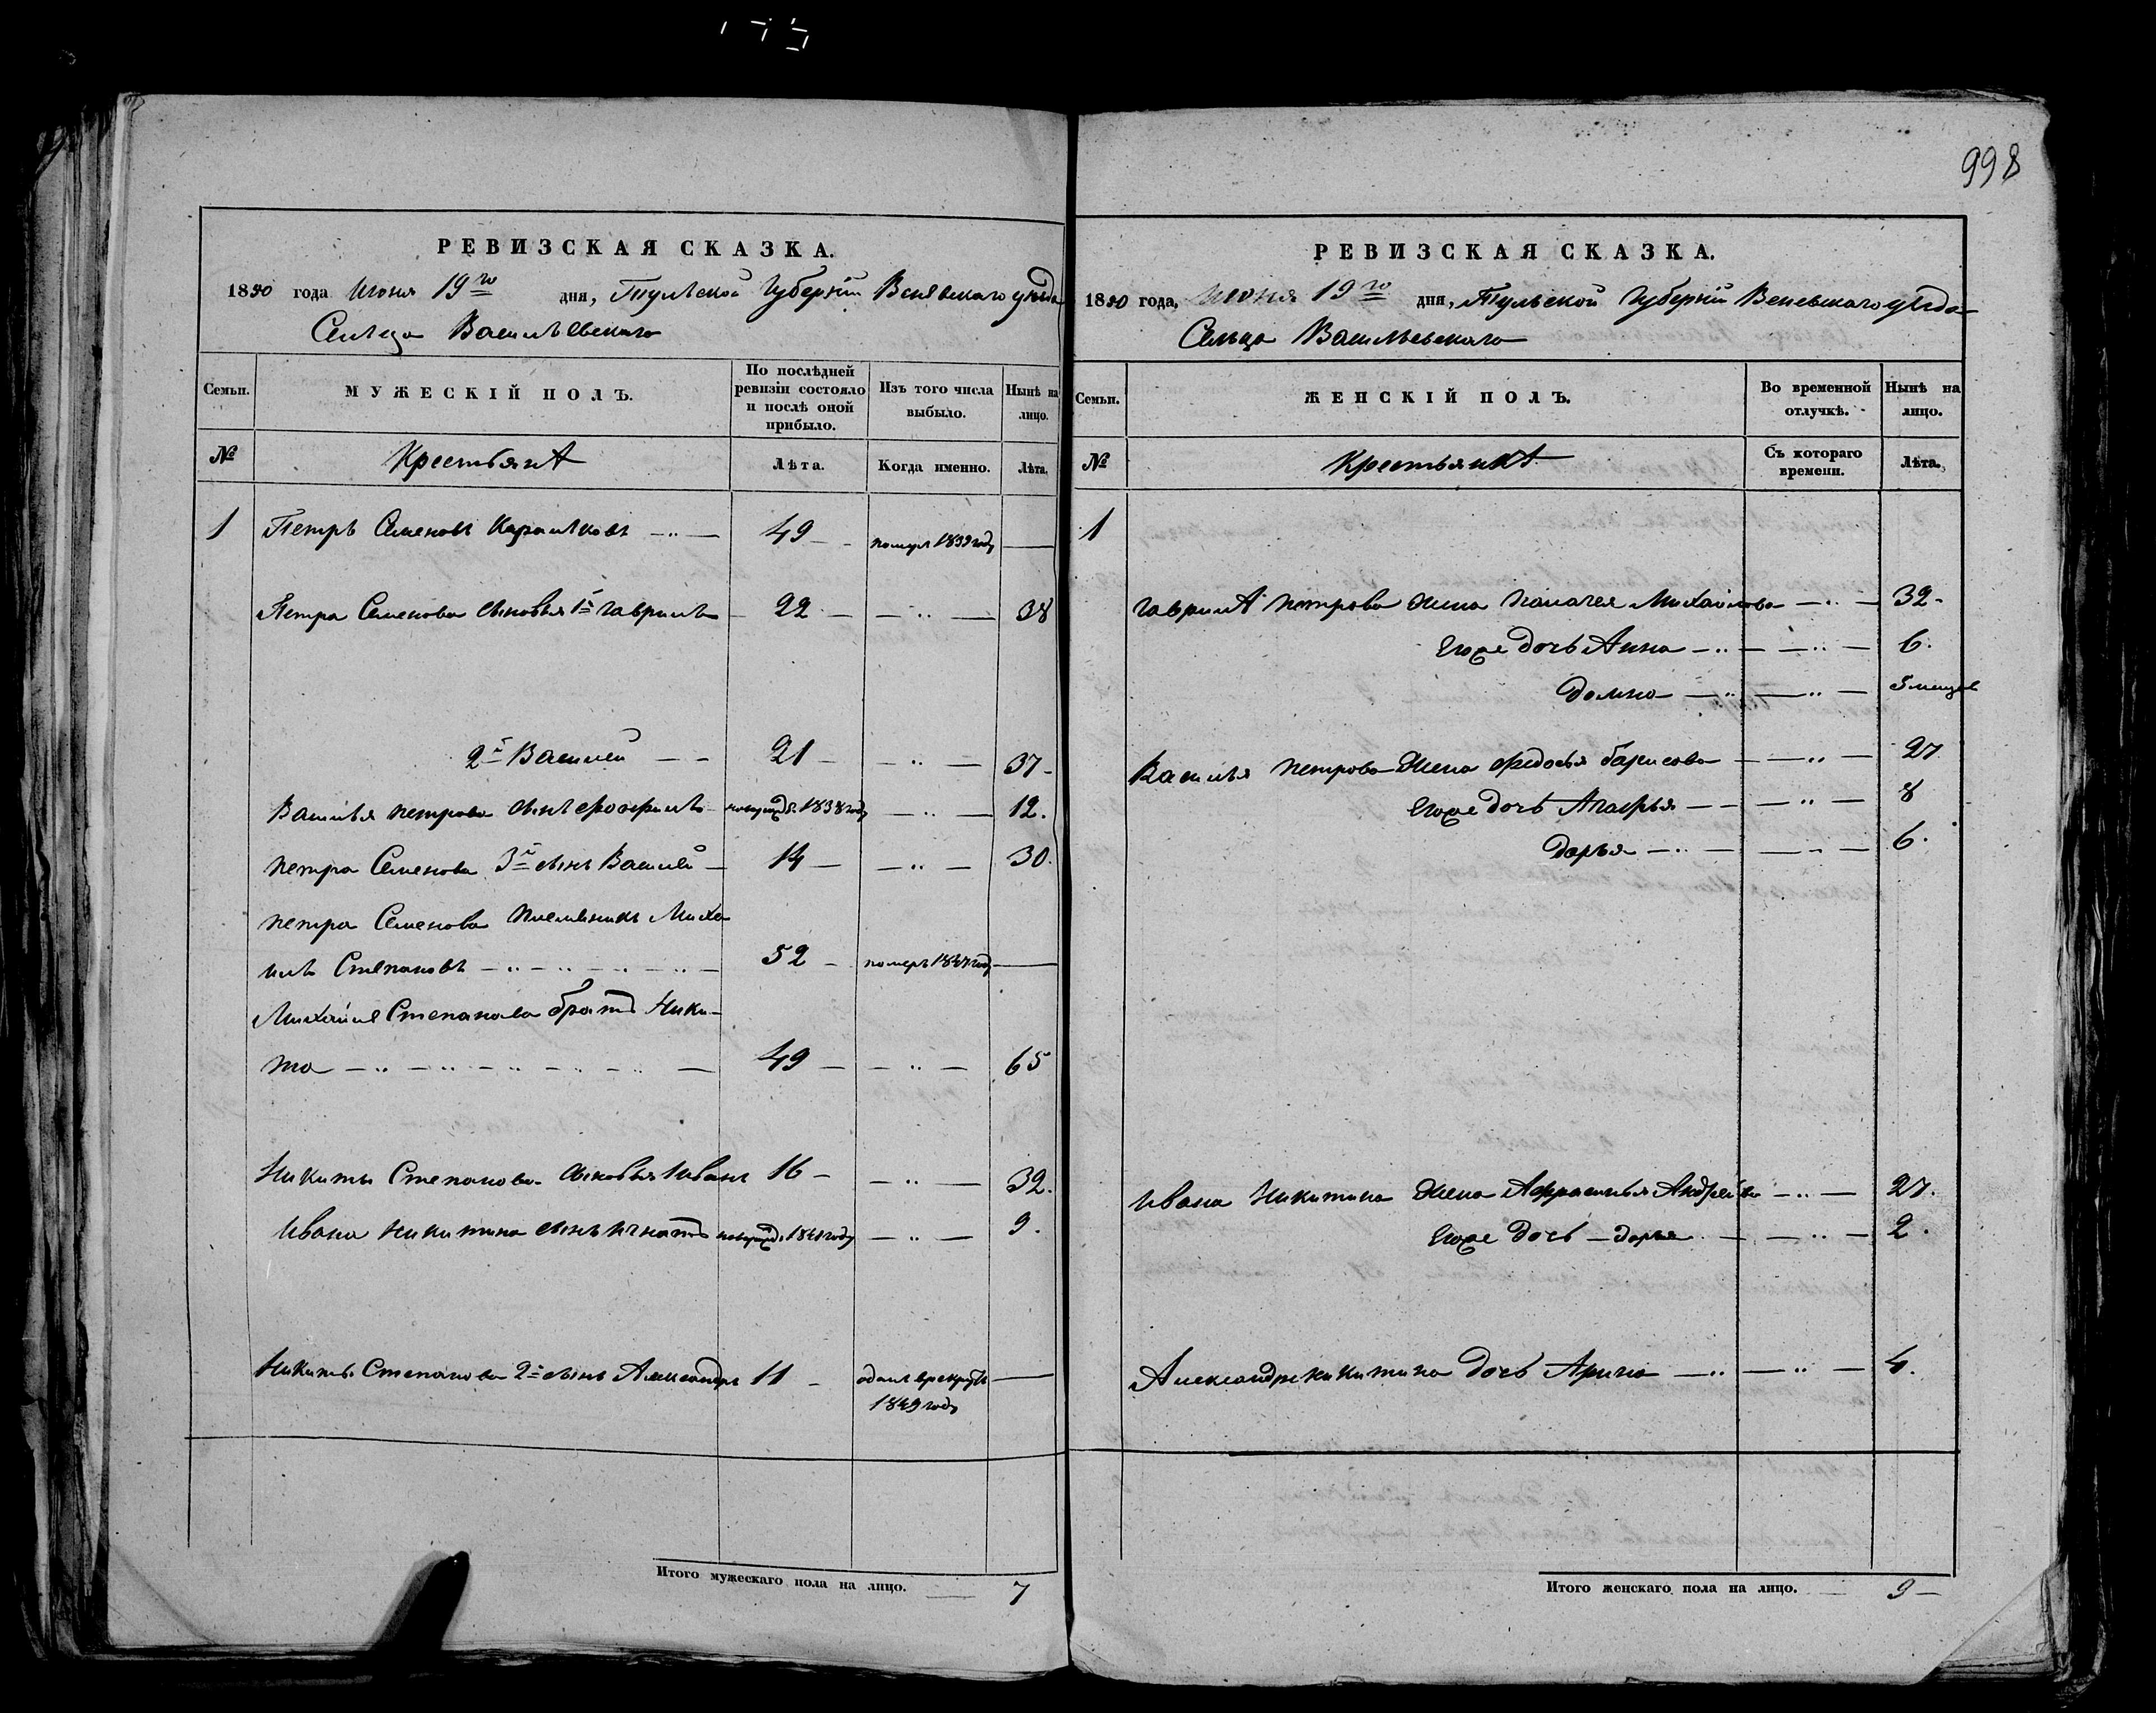 998
РЕВИЗСКАЯ СКАЗКА.
1850 года Июня 19го дня, Тульской Губернiи Веневскаго уѣзда
Сельца Васильевскаго
Семьи.
МУЖЕСКІЙ ПОЛЪ.
По послѣдней ревизіи состояло и послѣ оной прибыло.
Изъ того числа выбыло.
Нынѣ на лицо.
№
КрестьянѢ
Лѣта.
Когда именно.
Лѣта.
1 Петръ Семеновъ 49 — померъ 1839 году —
Петра Семенова сыновья 1й гаврила — 22 — — „ — 38
2й Василей — — 21 — — „ — 37 —
Василья петрова сынъ — 1838 году — „ — 12.
петра Семенова 3й сынъ Василей — 14 — — „ — 30.
петра Семенова племяникъ Миха
илъ Степановъ — „ — „ — „ — „ — 52 — померъ 1847 году —
Михайле Степанова братъ Ники-
та — „ — „ — „ — „ — „ — 49 — — „ — 65
Никиты Степанова сыновья Иванъ 16 — — „ — 32.
Ивана Никитина сынъ игнатъ 1841 году — „ — 9.
Никиты Степанова 2й сынъ Александръ 11 — одан врекруты —
1849 году
Итого мужескаго пола на лицо. — 7
РЕВИЗСКАЯ СКАЗКА.
1850 года, Июня 19го дня, Тульской Губернiи Веневскаго уѣзда
Сельца Васильевскаго
Семьи.
ЖЕНСКІЙ ПОЛЪ.
Во временной отлучкѣ.
Нынѣ на лицо.
№
КрестьянкѢ
Съ котораго времени.
Лѣта.
1
гаврилѢ петрова жена Палагея Михайлова — „ — 32 -
Егоже дочь Анна — „ — — „ — 6.
Домна — „ — — „ — 5 месяцов
Василья петрова жена федосья барисова — — „ — 27
Егоже дочь — — — „ — 8
Дарья — „ — — „ — 6.
Ивана Никитина жена Афрасинья Андреева — „ — 27.
Егоже дочь — Дарья — — „ — 2.
Александра никитина дочь Арина — „ — „ — 4.
Итого женскаго пола на лицо. — 9 —